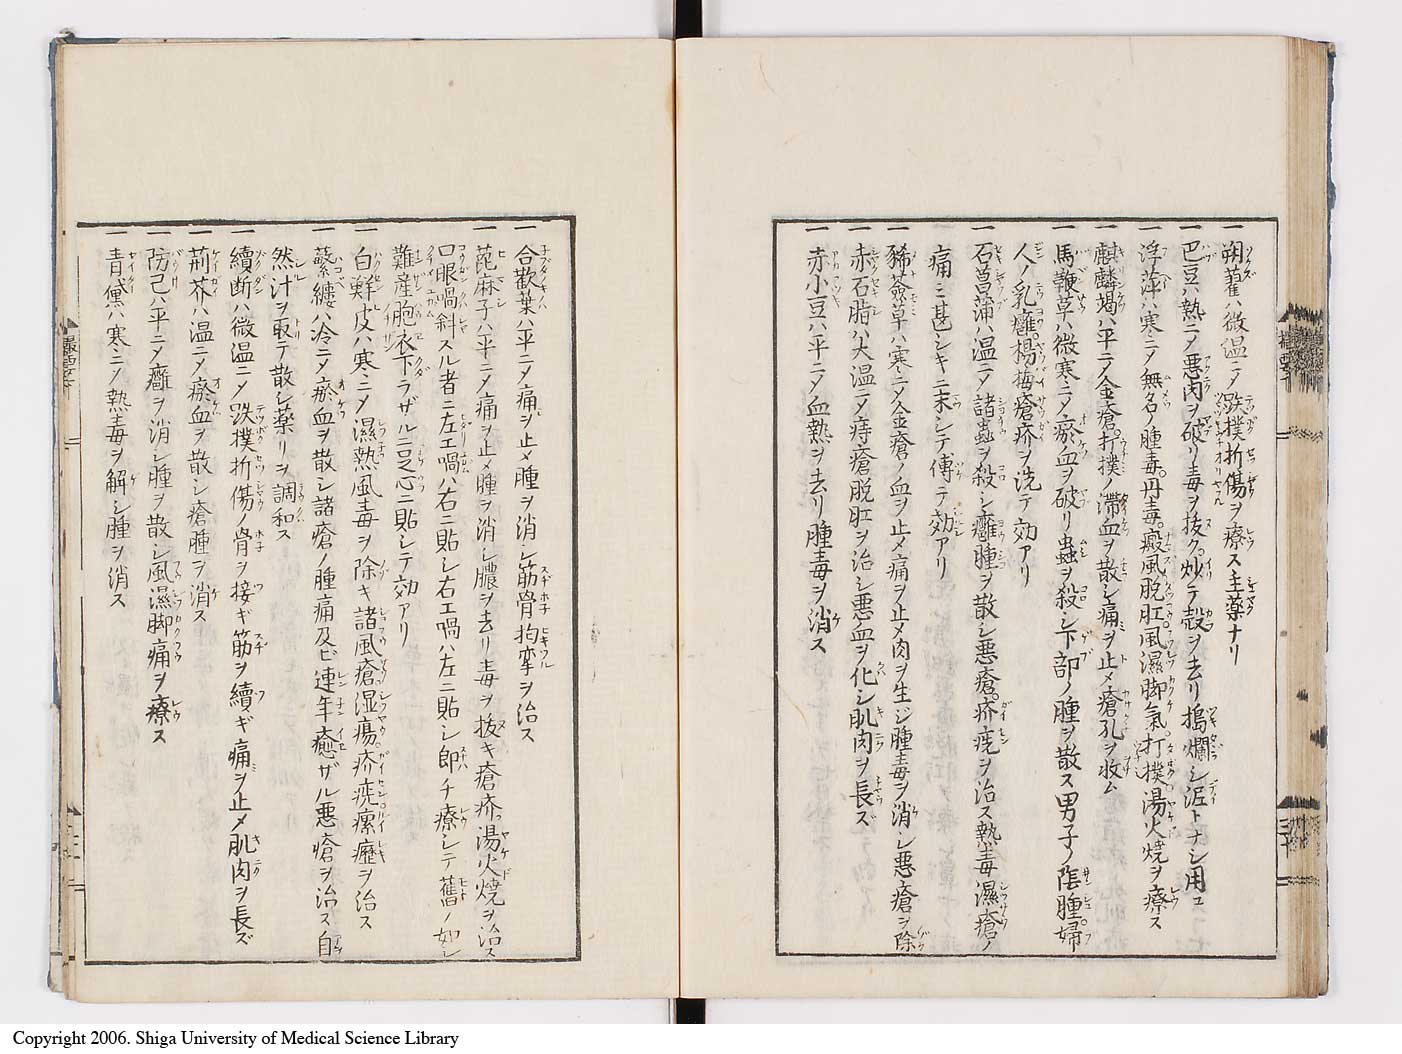 一 蒴藋ハ微温ニ〆跌撲折傷ヲ療ス主薬ナリ
一 巴豆ハ熱ニ〆悪肉ヲ破リ毒ヲ抜ク炒テ殻ヲ去リ搗爛シ泥トナシ用ユ
一 浮萍ハ寒ニ〆無名ノ腫毒。丹毒。癜風脱肛。風濕脚氣。打撲湯火焼ヲ療ス
一 麒麟竭ハ平ニ〆金瘡。打撲ノ滞血ヲ散シ痛ヲ止メ瘡孔ヲ收ム
一 馬鞭草ハ微寒ニ〆瘀血ヲ破リ蟲ヲ殺シ下部ノ腫ヲ散ス男子ノ陰腫。婦
人ノ乳癰楊梅瘡疥ヲ洗テ効アリ
一 石菖蒲ハ温ニ〆諸蟲ヲ殺シ癰腫ヲ散シ悪瘡。疥㾌ヲ治ス熱毒濕瘡ノ
痛ミ甚シキニ末シテ傅テ効アリ
一 豨薟草ハ寒ニ〆金瘡ノ血ヲ止メ痛ヲ止メ肉ヲ生ジ腫毒ヲ消シ悪瘡ヲ除
一 赤石脂ハ大温ニ〆痔瘡脱肛ヲ治シ悪血ヲ化シ肌肉ヲ長ズ
一 赤小豆ハ平ニ〆血熱ヲ去リ腫毒ヲ消ス
一 合歡葉ハ平ニ〆痛ヲ止メ腫ヲ消シ筋骨拘攣ヲ治ス
一 蓖麻子ハ平ニ〆痛ヲ止メ腫ヲ消シ膿ヲ去リ毒ヲ抜キ瘡疥湯火焼ヲ治ス
口眼喎斜スル者ニ左エ喎ハ右ニ貼シ右エ喎ハ左ニ貼シ即チ療シテ舊ノ如シ
難産胞衣下ラザルニ足心ニ貼シテ効アリ
一 白鮮皮ハ寒ニ〆濕熱風毒ヲ除キ諸風瘡湿瘍。疥㾌瘰癧ヲ治ス
一 蘩縷ハ冷ニ〆瘀血ヲ散シ諸瘡ノ腫痛及ビ連年癒ザル悪瘡ヲ治ス自
然汁ヲ取テ散シ薬リヲ調和ス
一 續断ハ微温ニ〆跌撲折傷ノ骨ヲ接ギ筋ヲ續ギ痛ヲ止メ肌肉ヲ長ズ
一 荊芥ハ温ニ〆瘀血ヲ散シ瘡腫ヲ消ス
一 防己ハ平ニ〆癰ヲ消シ腫ヲ散シ風濕脚痛ヲ療ス
一 青黛ハ寒ニ〆熱毒ヲ解シ腫ヲ消ス
Copyright 2006. Shiga University of Medical Science Library